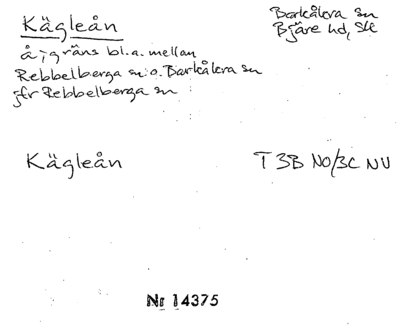 Kägleån
Barkåkra sn
Bjäre hd, Sk
å; gräns bl.a. mellan
Rebbelberga sn o. Barkåkra sn
jfr Rebbelberga sn
Kägleån
T 3B NO/3C NV
Nr 14375